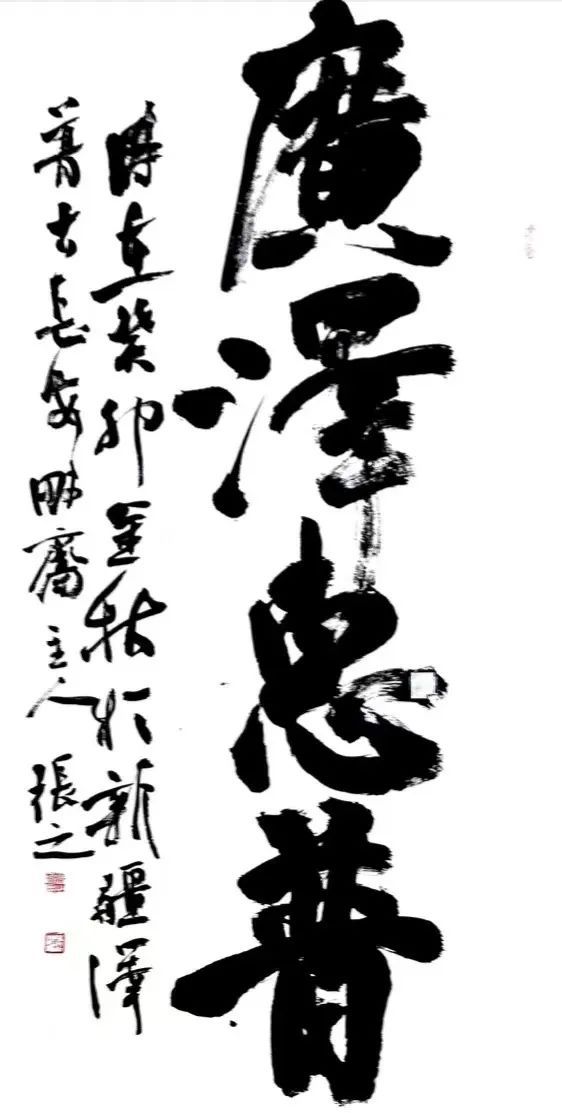 廣澤惠普
時在癸卯金秋於新疆澤
普古長安
齋主人
張之